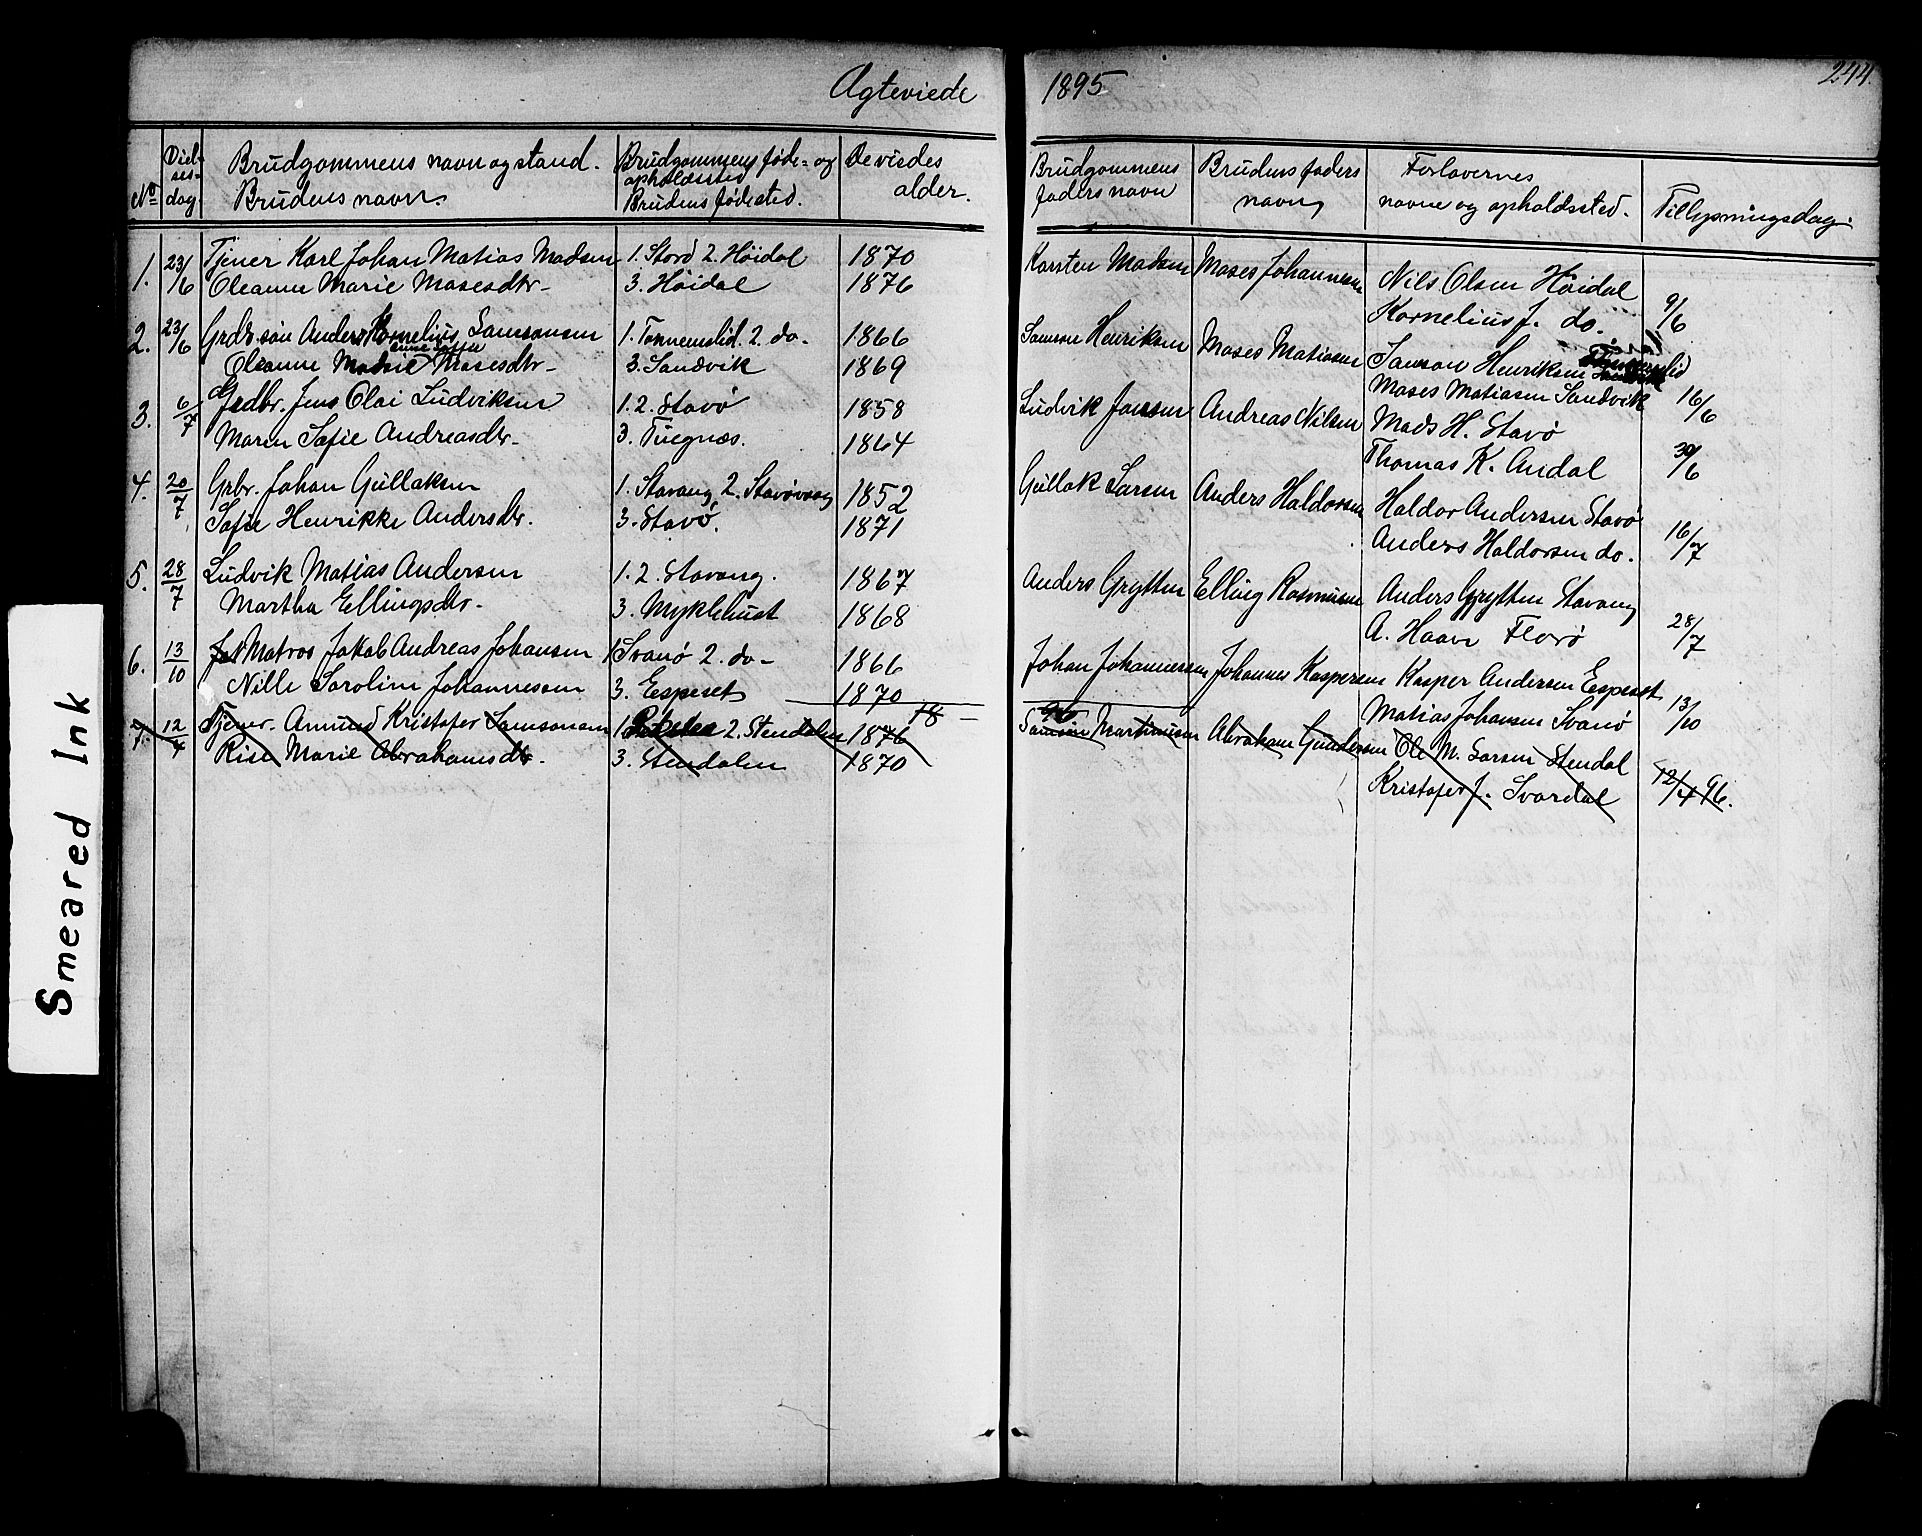 Ægteviede 1895 244.
No
Viel-
ses-
dag.
Brudgommens navn og stand.
Brudens navn.
Brudgommens føde- og
opholdssted
Brudens fødested.
De viedes
alder.
Brudgommens
faders navn
Brudens faders
navn
Forlovernes
navne og opholdssted.
Tillysningsdag.
1. 23/6 Tjener Karl Johan Matias Madsen 1. Stord 2. Høidal 1870 Karsten Madsen Moses Johannesen Nils Olsen Høidal
Oleanne Marie Mosesdtr- 3. Høidal 1876 Kornelius J. do. 9/6
2. 23/6 Grdr. søn Anders Kornelius Samsonsen 1. Tonnemslid. 2. do- 1866 Samson Henriksen Moses Matiasen Samson Henriksen
Oleanne Mosesdtr- 3. Sandvik 1869 Moses Matiasen Sandvik 16/6
3. 6/7 Grdbr. Jens Olai Ludviksen 1.2. Stavø 1858 Ludvik Jansen Andreas Nilsen Mads H. Stavø
Maren Sofie Andreasdtr- 3. Tuegnæs. 1864 Thomas K. Andal 30/6
4. 20/7 Grbr. Johan Gullaksen 1. Stavang 2. Stavøvaag 1852 Gullak Larsen Anders Haldorsen Haldor Andersen Stavø
Sofie Henrikke Andersdtr. 3. Stavø. 1871 Anders Haldorsen do. 16/7
5. 28/7 Ludvik Matias Andersen 1.2. Stavang. 1867 Anders Grytten Elling Rasmusen Anders Grytten Stavang
Martha Ellingsdtr- 3. Myklebust 1868 A. Haave Florø 28/7
6. 13/10 Matros Jakob Andreas Johansen 1. Svanø 2. do- 1866 Johan Johannessen Johannes Kaspersen Kasper Andersen Espeset
Nille Karoline Johannesen 3. Espeset 1870 Matias Johansen Svanø 13/10
18 96
7. 12/4 Tjener. Amund Kristofer Samsonsen 1. 2. Stendalen 1876 Samson Martinusen Abraham Gundersen Ole M. Larsen Stendal
Rise Marie Abrahamsdtr. 3. Stendalen 1870 Kristofer J. Svardal 12/4 96.
Smeared Ink